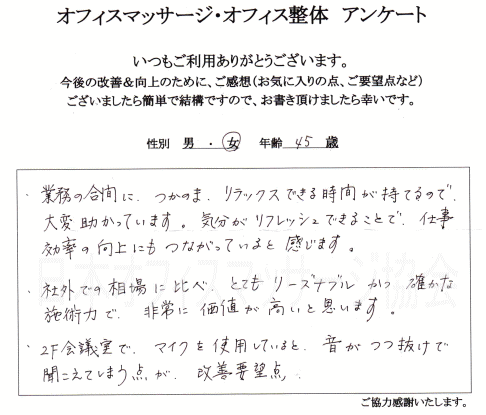 オフィスマッサージ・オフィス整体 アンケート
いつもご利用ありがとうございます。
今後の改善&向上のために、ご感想(お気に入りの点、ご要望点など)
ございましたら簡単で結構ですので、お書き頂けましたら幸いです。
性別 男 ・ 女 年齢 45 歳
・業務の合間に、つかのま、リラックスできる時間が持てるので、
大変助かっています。気分がリフレッシュできることで、仕事
効率の向上にもつながっていると感じます。
・社外での相場に比べ、とてもリーズナブルかつ確かな
施術力で、非常に価値が高いと思います。
・2F会議室で、マイクを使用していると、音がつつ抜けで
聞こえてしまう点が、改善要望点。
日本オフィスマッサージ協会
ご協力感謝いたします。